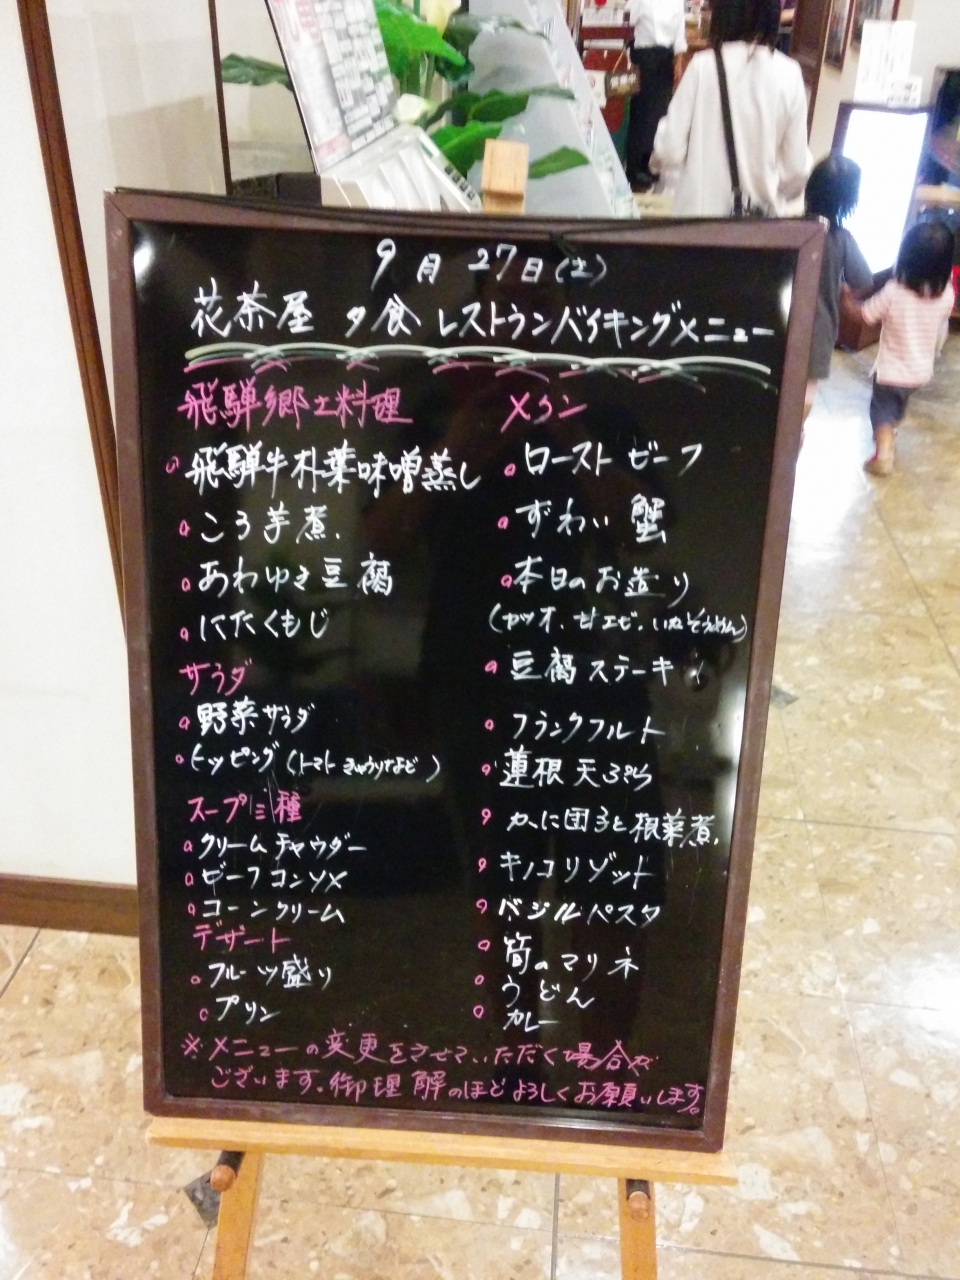 9月27日(土)
花茶屋 夕食 レストランバイキングメニュー
飛騨郷土料理
飛騨牛朴葉味噌蒸し
ころ芋煮
あわゆき豆腐
にたくもじ
サラダ
野菜サラダ
トッピング(トマトきゅうりなど)
スープ三種
クリームチャウダー
ビーフコンソメ
コーンクリーム
デザート
フルーツ盛り
プリン
メイン
ローストビーフ
ずわい蟹
本日のお造り
(カツオ、甘エビ、いかそうめん)
豆腐ステーキ
フランクフルト
蓮根天ぷら
かに団子と根菜煮
キノコリゾット
バジルパスタ
筍のマリネ
うどん
カレー
※メニューの変更をさせていただく場合が
ございます。御理解のほどよろしくお願いします。